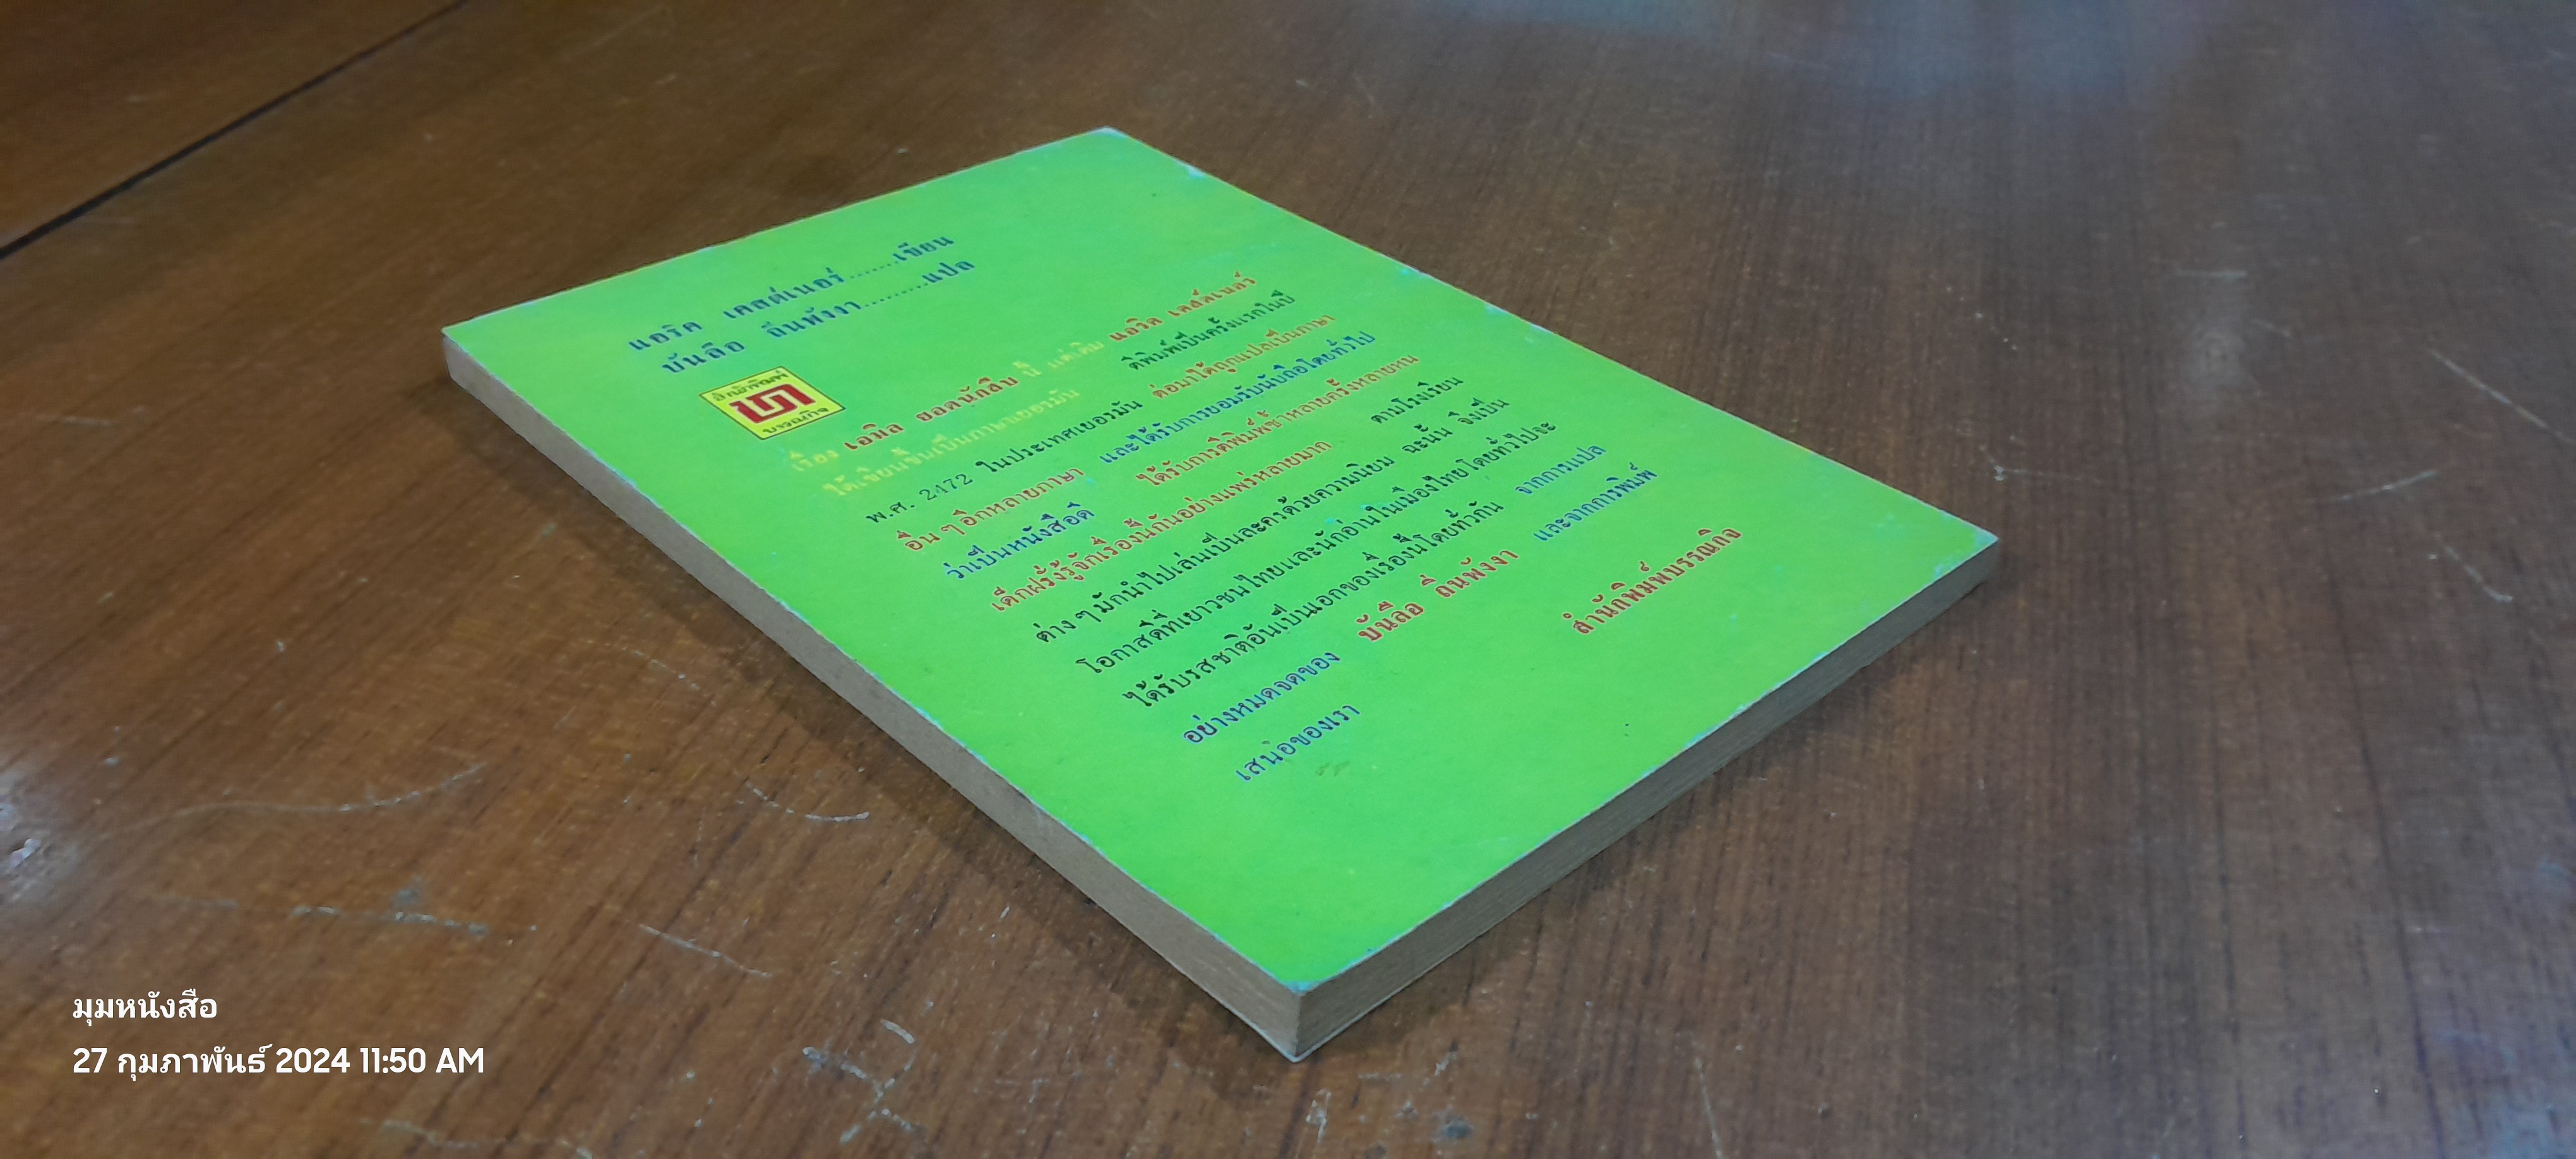 แอริค เคสต์เนอร์.......เขียน
บันลือ ถิ่นพังงา.........แปล
ลิกขภัณฑ์
บรรณกิจ
เรื่อง เอมิล ยอดนักสืบ นี้ แต่เดิม แอริค เคสต์เนอร์
ได้เขียนขึ้นเป็นภาษาเยอรมัน ตีพิมพ์เป็นครั้งแรกในปี
พ.ศ. 2472 ในประเทศเยอรมัน ต่อมาได้ถูกแปลเป็นภาษา
อื่น ๆ อีกหลายภาษา และได้รับการยอมรับนับถือโดยทั่วไป
ว่าเป็นหนังสือดี ได้รับการตีพิมพ์ซ้ำหลายครั้งหลายหน
เด็กฝรั่งรู้จักเรื่องนี้กันอย่างแพร่หลายมาก ตามโรงเรียน
ต่าง ๆ มักนำไปเล่นเป็นละครด้วยความนิยม ฉะนั้น จึงเป็น
โอกาสดีที่เยาวชนไทยและนักอ่านในเมืองไทยโดยทั่วไปจะ
ได้รับรสชาติอันเป็นเอกของเรื่องนี้โดยทั่วกัน จากการแปล
อย่างหมดจดของ บันลือ ถิ่นพังงา และจากการพิมพ์
เสนอของเรา
สำนักพิมพ์บรรณกิจ
มุมหนังสือ
27 กุมภาพันธ์ 2024 11:50 AM